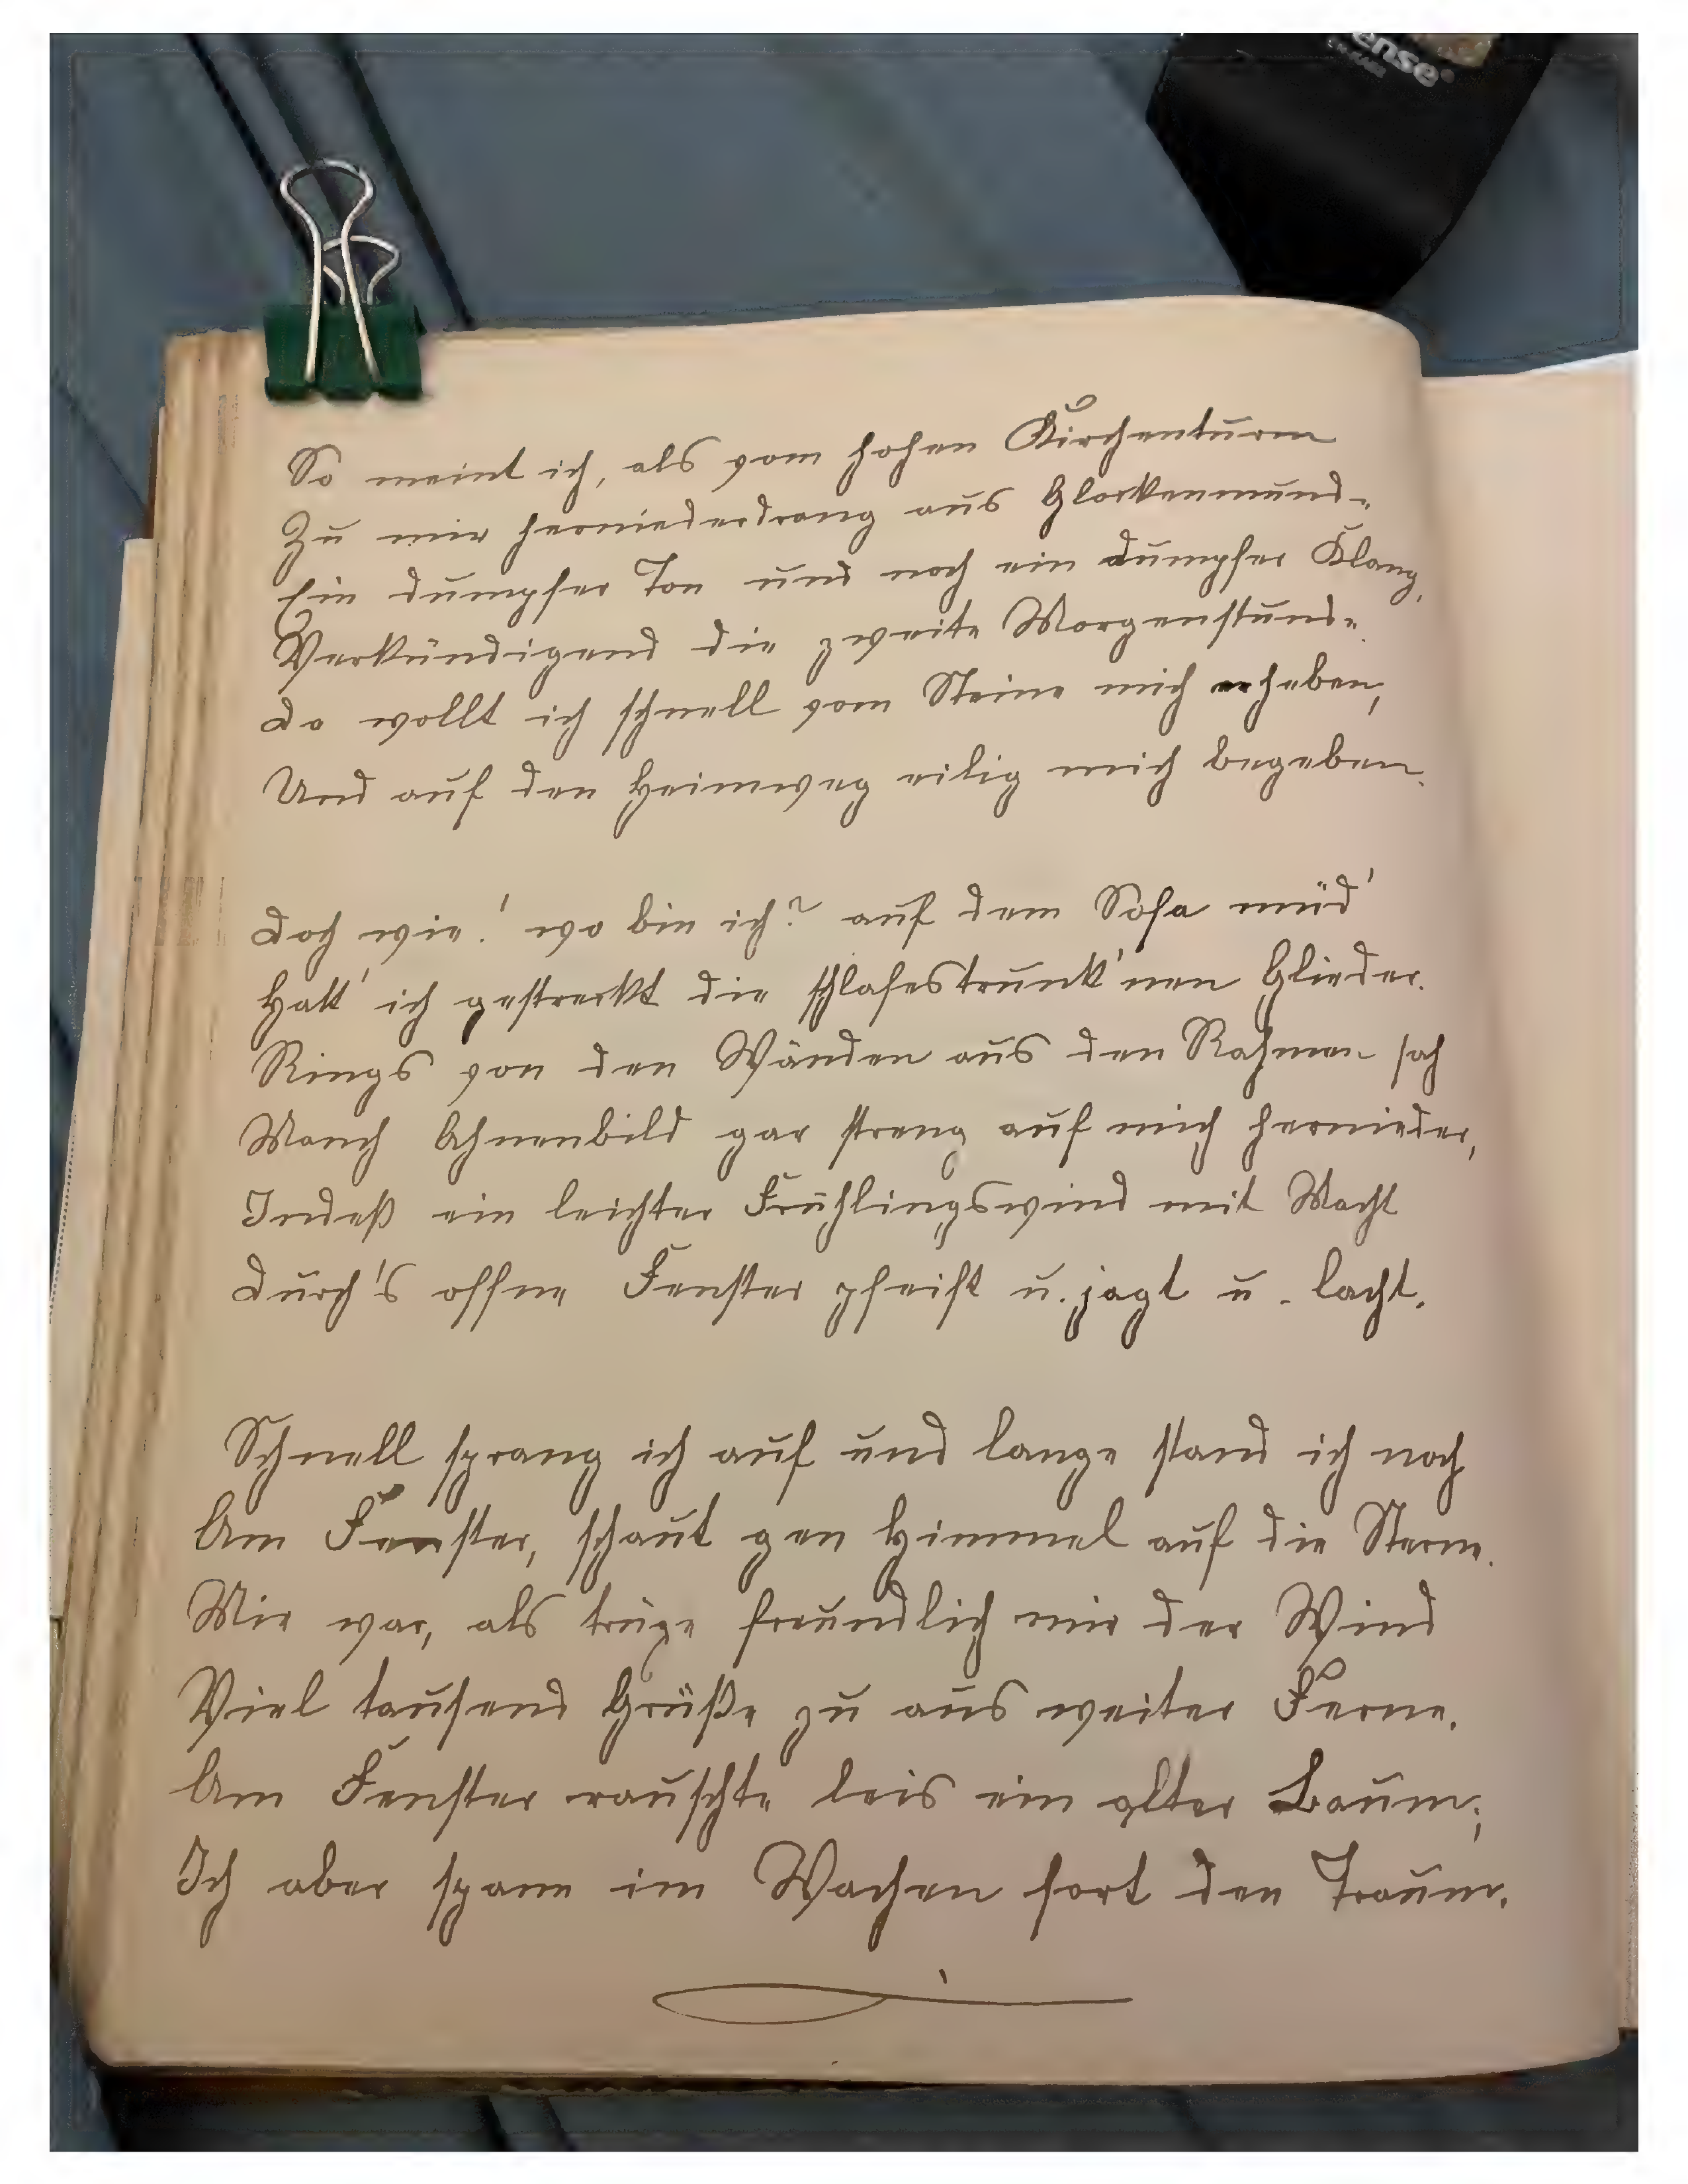 ense®
So meint ich, als vom hohen Kirchenturm
Zu mir herniederdrang aus Glockenmunde
Ein dumpfer Ton und noch ein dumpfer Klang,
Verkündigend die zweite Morgenstunde.
Da wollt ich schnell vom Steine mich erheben,
Und auf den Heimweg eilig mich begeben.
Doch wie! wo bin ich? auf dem Sofa müd'
Hatt' ich gestreckt die schlafestrunk'nen Glieder.
Rings von den Wänden aus den Rahmen sah
Manch Ahnenbild gar streng auf mich hernieder,
Indeß ein leichter Frühlingswind mit Macht
Durch's offne Fenster pfeift u. jagt u. lacht.
Schnell sprang ich auf und lange stand ich noch
Am Fenster, schaut gen Himmel auf die Sterne.
Mir war, als trüge freundlich mir der Wind
Viel tausend Grüße zu aus weiter Ferne.
Am Fenster rauschte leis ein alter Baum;
Ich aber spann im Wachen fort den Traum.